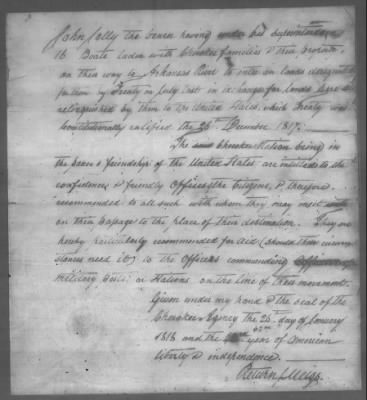 John Jolly the bearer having under his superintendance
16 Boats laden with Cherokee families & their property
on their way to Arkansas River to settle on lands designated
for them by Treaty in July last in exchange for lands here
relinquished by them to the United States, which Treaty was
Constitutionally ratified the 26th December 1817.
The said Cherokee Nation being in
the peace & friendship of the United States are intitled to the
confidence & friendly Offices of the Citizens, & therefore
recommended to all such with whom they may meet with
on their passage to the place of their destination. They are
hereby particularly recommended for aid (should their circum
stances need it) to the Officers commanding
Military Posts or Stations on the line of their movements.
Given under my hand & the seal of the
Cherokee Agency the 25th day of January
1818 and the 42nd year of American
liberty & independence.
Return J. Meigs